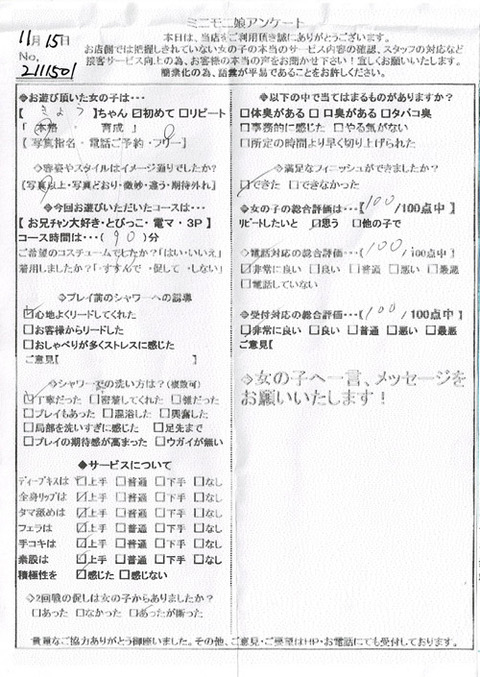 ミニモニ娘アンケート
11月15日
No.
2111501
本日は、当店をご利用頂き誠にありがとうございます。
お店側では把握しきれていない女の子の本当のサービス内容の確認、スタッフの対応など
接客サービス向上の為、お客様の本当の声をお聞かせ下さい！宜しくお願いいたします。
簡素化の為、語彙が平易であることをお許しください。
◆お遊び頂いた女の子は・・・
【 きょう 】ちゃん ☑初めて □リピート
「 本格 ・ 育成 」
[ 写真指名・電話ご予約・フリー ]
◇容姿やスタイルはイメージ通りでしたか?
[写真以上・写真どおり・微妙・違う・期待外れ]
◆今回お遊びいただいたコースは・・・
【 お兄チャン大好き・とびっこ・電マ・3P 】
コース時間は・・・( 90 )分
ご希望のコスチュームでしたか?「はい・いいえ」
着用しましたか?「すすんで ・促して ・しない」
◇プレイ前のシャワーへの誘導
☑心地よくリードしてくれた
□お客様からリードした
□おしゃべりが多くストレスに感じた
ご意見【 】
◇シャワー室の洗い方は？(複数可)
☑丁寧だった □密着してくれた □雑だった
□プレイもあった □混浴した □興奮した
□局部を洗いすぎに感じた □足先まで
□プレイの期待感が高まった □ウガイが無い
◆サービスについて
ディープキスは ☑上手 □普通 □下手 □なし
全身リップは ☑上手 □普通 □下手 □なし
タマ舐めは ☑上手 □普通 □下手 □なし
フェラは ☑上手 □普通 □下手 □なし
手コキは ☑上手 □普通 □下手 □なし
素股は ☑上手 □普通 □下手 □なし
積極性を ☑感じた □感じない
◇2回戦の促しは女の子からありましたか？
□あった □なかった □あったが断った
◆以下の中で当てはまるものがありますか?
□体臭がある □ 口臭がある □タバコ臭
□事務的に感じた □やる気がない
□所定の時間より早く切り上げられた
◇満足なフィニッシュができましたか？
☑できた □できなかった
◆女の子の総合評価は・・・【 100 /100点中 】
リピートしたいと ☑思う □他の子で
◇電話対応の総合評価・・・( 100 /100点中]
☑非常に良い □良い □普通 □悪い □最悪
□電話していない
◆受付対応の総合評価・・・( 100 /100点中]
☑非常に良い □良い □普通 □悪い □最悪
ご意見[
◇女の子へ一言、メッセージを
お願いいたします！
貴重なご協力ありがとう御座いました。その他、ご意見・ご要望はHP・お電話にても受付しております。